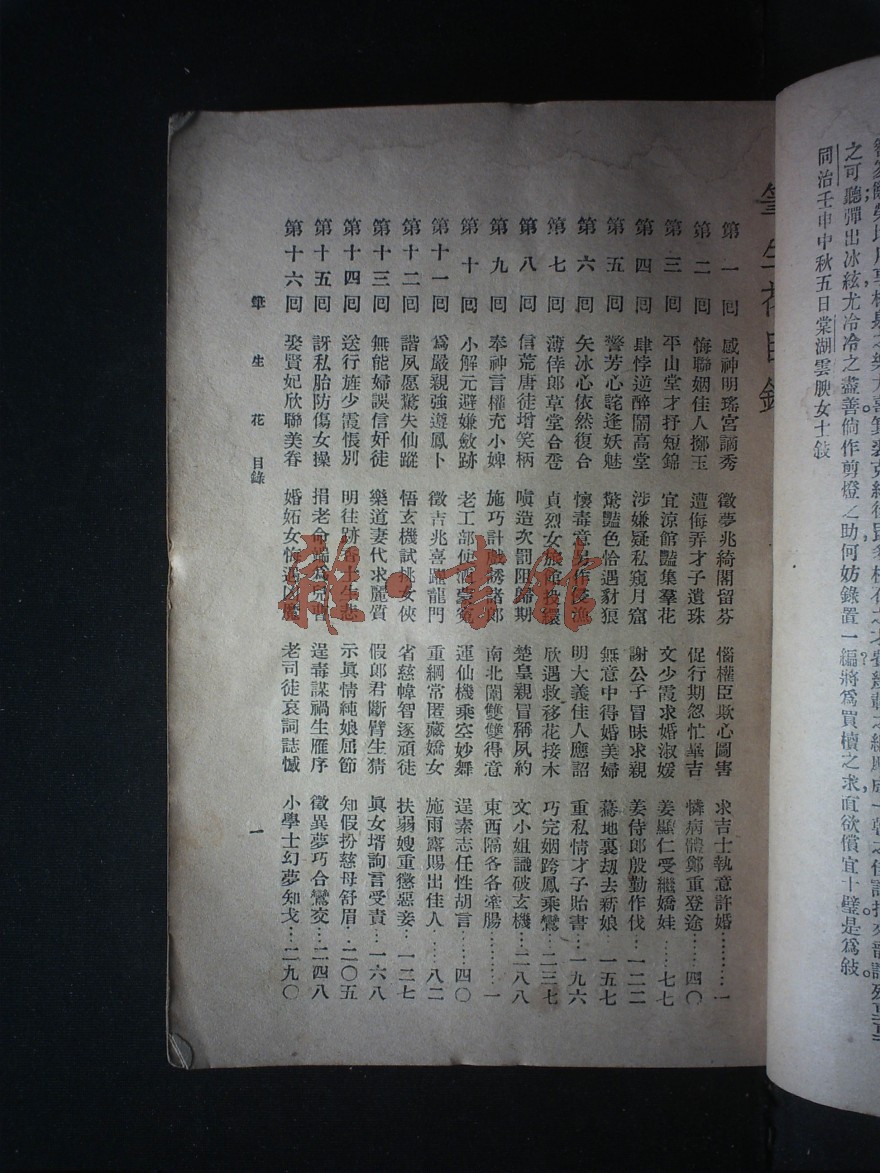 之可聽彈出冰絃尤冷冷之盡善倘作剪燈之助何妨錄置一編將爲買櫝之求直欲償宜十璧是爲敍
同治壬申中秋五日棠湖雲腴女士敍
筆生花目錄
第一回 感神明瑤宮謫秀 徵夢兆綺閣留芬 惱權臣欺心圖害 求吉士執意許婚………一
第二回 悔聯姻佳人擲玉 遭侮弄才子遺珠 促行期忽忙畢吉 憐病體鄭重登途……四〇
第三回 平山堂才抒短錦 宜涼館豔集羣花 文少霞求婚淑媛 姜顯仁受繼嬌娃……七七
第四回 肆悖逆醉鬧高堂 涉嫌疑私窺月窟 謝公子冒昧求親 姜侍郎殷勤作伐…一二二
第五回 警芳心詫逢妖魅 驚豔色恰遇豺狼 無意中得婚美婦 驀地裏刼去新娘…一五七
第六回 矢冰心依然復合 懷毒意 作 漁 明大義佳人應詔 重私情才子貽書…一九六
第七回 薄倖郎草堂合巹 貞烈女旅館投繯 欣遇救移花接木 巧完姻跨鳳乘鸞…二三七
第八回 信荒唐徒增笑柄 嗔造次罰阻歸期 楚皇親冒稱夙約 文小姐識破玄機…二八八
第九回 奉神言權充小婢 施巧計 誘諸郎 南北闈雙雙得意 東西隔各各牽腸………一
第十回 小解元避嫌斂跡 老工部使酒蒙冤 運仙機乘空妙舞 逞素志任性胡言……四〇
第十一回 爲嚴親強遵鳳卜 徵吉兆喜躍龍門 重綱常匿藏嬌女 施雨露賜出佳人……八二
第十二回 諧夙愿驚失仙蹤 悟玄機試挑女俠 省慈幃智逐頑徒 扶弱嫂重懲惡妾…一二七
第十三回 無能婦誤信奸徒 樂道妻代求麗質 假郎君斷臂生猜 眞女壻詢言受責…一六八
第十四回 送行旌少霞悵別 明往跡 士生悲 示眞情純娘屈節 知假扮慈母舒眉…二〇五
第十五回 訝私胎防傷女操 捐老命端爲兒曹 逞毒謀禍生雁序 徵異夢巧合鸞交…二四八
第十六回 娶賢妃欣聯美眷 婚妬女悔遇凶魔 老司徒哀詞誌憾 小學士幻夢知戈…二九〇
筆生花 目錄 一
雜·書館